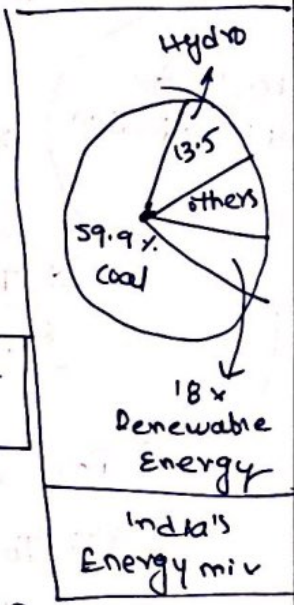 Hydro
13.5
others
59.9 %
coal
18 x
Denewable
Energy
India's
Energy mix